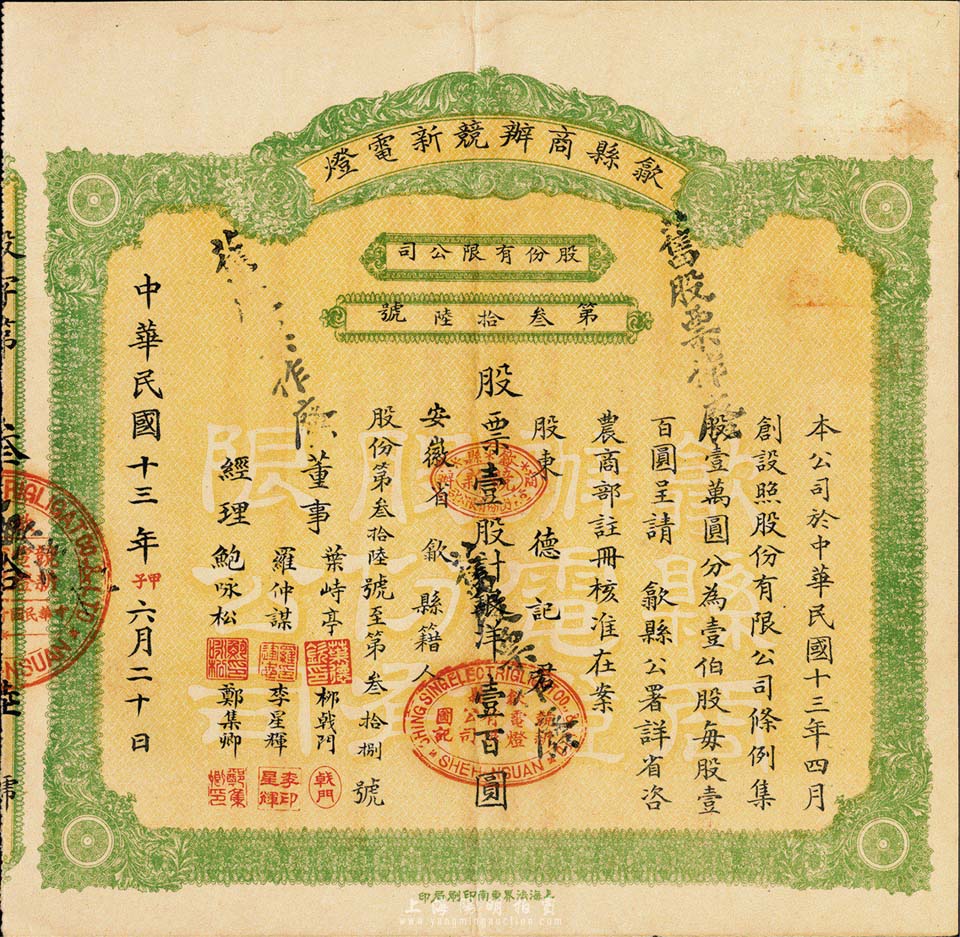 歙縣商辦競新電燈
股份有限公司
第叁拾陸號
本公司於中華民國十三年四月
創設照股份有限公司條例集
股壹萬圓分為壹伯股每股壹
百圓呈請 歙縣公署詳省咨
農商部註冊核准在案
股東 德記
股票壹股計銀洋壹百圓
安徽省 歙縣籍人
股份第叁拾陸號至第叁拾捌號
董事 葉峙亭 柳戟門
羅仲謀 李星輝
經理 鮑咏松 鄭集卿
中華民國十三年甲子六月二十日
舊股票作廢
舊股票作廢
作廢
歙縣商辦
電燈股份
有限公司
SING ELECTRIC LIGHT CO.
SHEH NSUAN
戟門
李印星輝
股字第叁拾陸號
上海法界東南印刷局印
上海陽明拍賣
www.yangmingauction.com